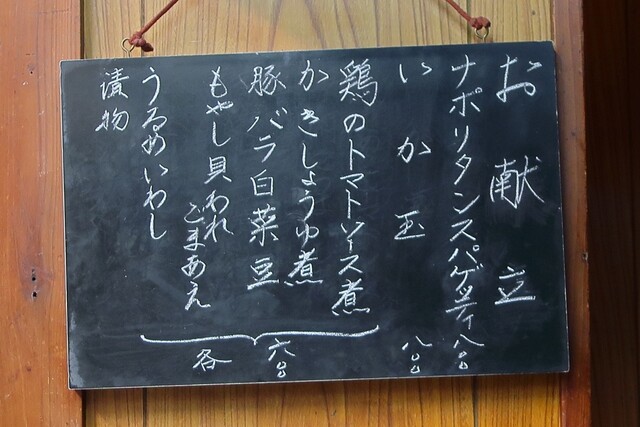 お献立
ナポリタンスパゲッティ 八〇〇
いか玉 八〇〇
鶏のトマトソース煮
かきしょうゆ煮
豚バラ白菜豆
もやし貝われ
ごまあえ
うるめいわし
漬物
各 六〇〇